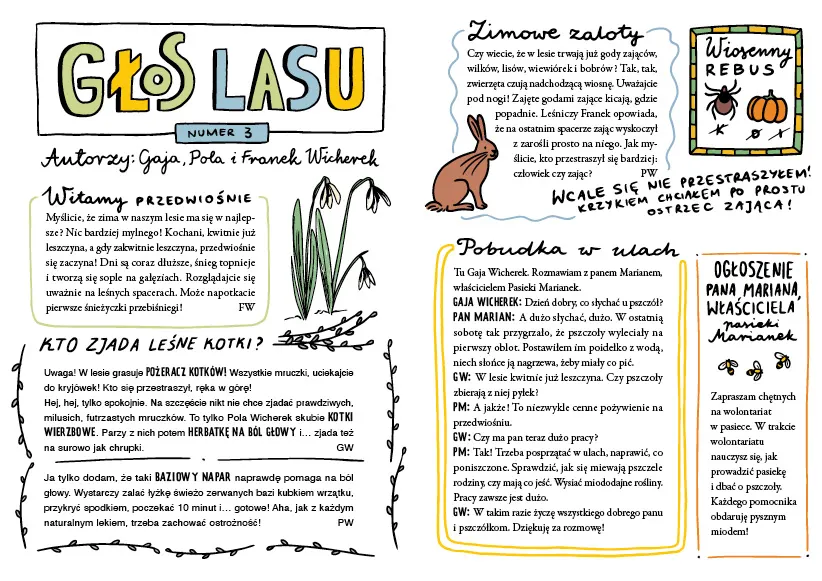 GŁOS LASU
NUMER 3
Autorzy: Gaja, Pola i Franek Wicherek
Witamy PRZEDWIOŚNIE
Myślicie, że zima w naszym lesie ma się w najlep-
sze? Nic bardziej mylnego! Kochani, kwitnie już
leszczyna, a gdy zakwitnie leszczyna, przedwiośnie
się zaczyna! Dni są coraz dłuższe, śnieg topnieje
i tworzą się sople na gałęziach. Rozglądajcie się
uważnie na leśnych spacerach. Może napotkacie
pierwsze śnieżyczki przebiśniegi! FW
KTO ZJADA LEŚNE KOTKI?
Uwaga! W lesie grasuje POŻERACZ KOTKÓW! Wszystkie mruczki, uciekajcie
do kryjówek! Kto się przestraszył, ręka w górę!
Hej, hej, tylko spokojnie. Na szczęście nikt nie chce zjadać prawdziwych,
milusich, futrzastych mruczków. To tylko Pola Wicherek skubie KOTKI
WIERZBOWE. Parzy z nich potem HERBATKĘ NA BÓL GŁOWY i... zjada też
na surowo jak chrupki. GW
Ja tylko dodam, że taki BAZIOWY NAPAR naprawdę pomaga na ból
głowy. Wystarczy zalać łyżkę świeżo zerwanych bazi kubkiem wrzątku,
przykryć spodkiem, poczekać 10 minut i... gotowe! Aha, jak z każdym
naturalnym lekiem, trzeba zachować ostrożność! PW
Zimowe zaloty
Czy wiecie, że w lesie trwają już gody zajęcy,
wilków, lisów, wiewiórek i bobrów? Tak, tak,
zwierzęta czują nadchodzącą wiosnę. Uważajcie
pod nogi! Zajęte godami zające kicają, gdzie
popadnie. Leśniczy Franek opowiada,
że na ostatnim spacerze zając wyskoczył
z zarośli prosto na niego. Jak my-
ślicie, kto przestraszył się bardziej:
człowiek czy zając? PW
WCALE SIĘ NIE PRZESTRASZYŁEM!
KRZYKIEM CHCIAŁEM PO PROSTU
OSTRZEC ZAJĄCA!
Wiosenny
REBUS
K Ø X
Pobudka w ulach
Tu Gaja Wicherek. Rozmawiam z panem Marianem,
właścicielem Pasieki Marianek.
GAJA WICHEREK: Dzień dobry, co słychać u pszczół?
PAN MARIAN: A dużo słychać, dużo. W ostatnią
sobotę tak przygrzało, że pszczoły wyleciały na
pierwszy oblot. Postawiłem im poidełko z wodą,
niech słońce ją nagrzewa, żeby miały co pić.
GW: W lesie kwitnie już leszczyna. Czy pszczoły
zbierają z niej pyłek?
PM: A jakże! To niezwykle cenne pożywienie na
przedwiośniu.
GW: Czy ma pan teraz dużo pracy?
PM: Tak! Trzeba posprzątać w ulach, naprawić, co
poniszczone. Sprawdzić, jak się miewają pszczele
rodziny, czy mają co jeść. Wysiać miododajne rośliny.
Pracy zawsze jest dużo.
GW: W takim razie życzę wszystkiego dobrego panu
i pszczółkom. Dziękuję za rozmowę!
OGŁOSZENIE
PANA MARIANA,
WŁAŚCICIELA
pasieki
Marianek
Zapraszam chętnych
na wolontariat
w pasiece. W trakcie
wolontariatu
nauczysz się, jak
prowadzić pasiekę
i dbać o pszczoły.
Każdego pomocnika
obdaruję pysznym
miodem!